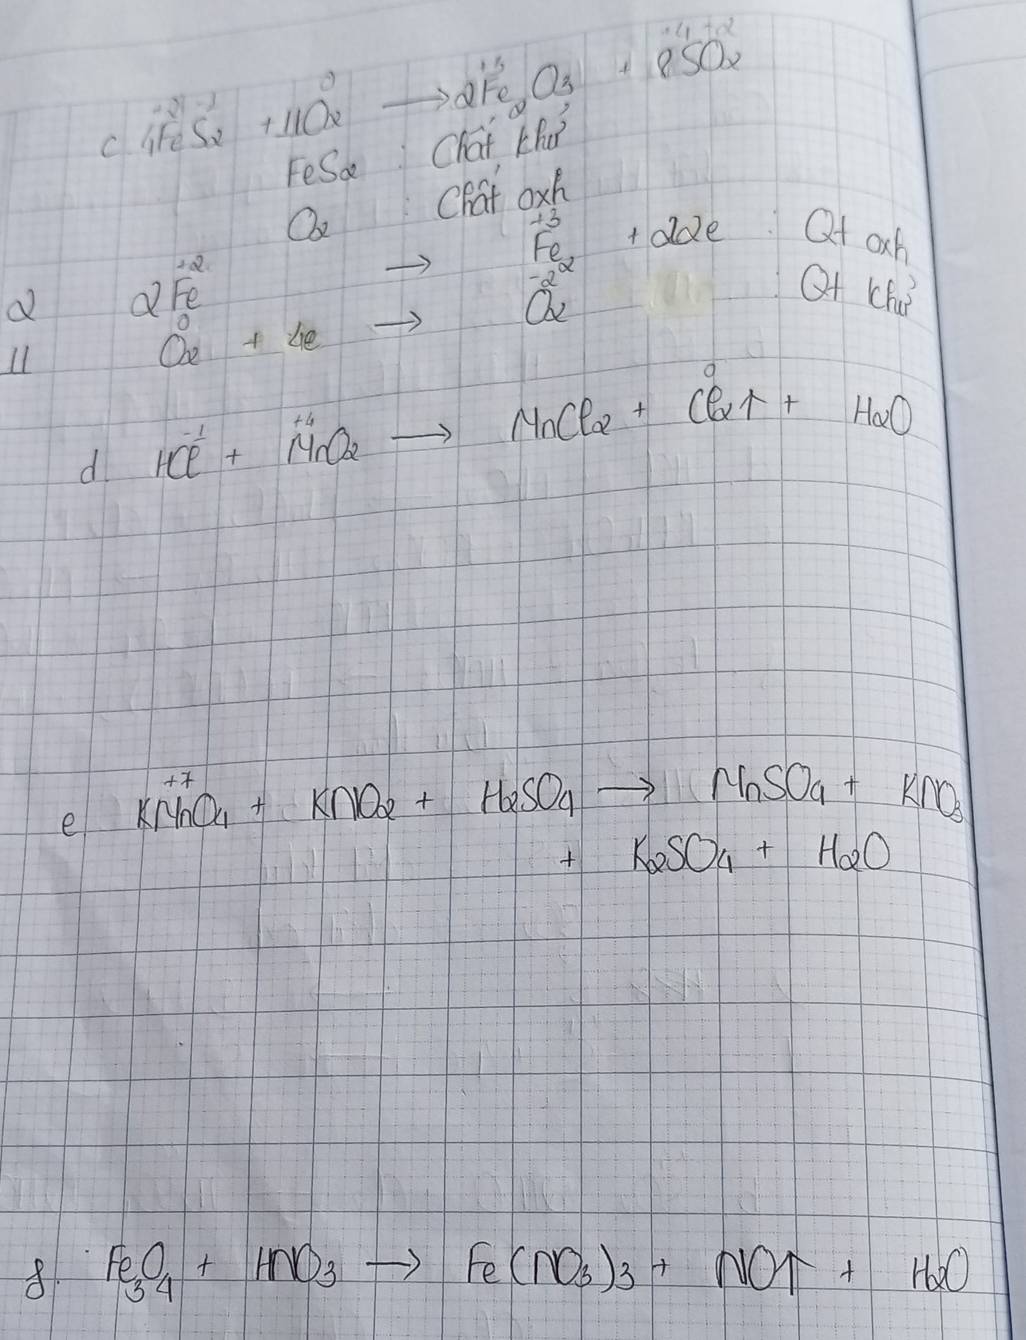 +2 -1 0 +3 +4 -2
c. 4FeS2 + 11O2 → 2Fe2O3 + 8SO2
FeS2 : Chất khử
O2 : Chất oxh
+2 +3
2 2Fe → Fe2 + 22e : Qt oxh
0 -2
11 O2 + 4e → O2 : Qt khử
-1 +4 0
d. HCl + MnO2 → MnCl2 + Cl2↑ + H2O
+7
e KMnO4 + KNO2 + H2SO4 → MnSO4 + KNO3
+ K2SO4 + H2O
g. Fe3O4 + HNO3 → Fe(NO3)3 + NO↑ + H2O